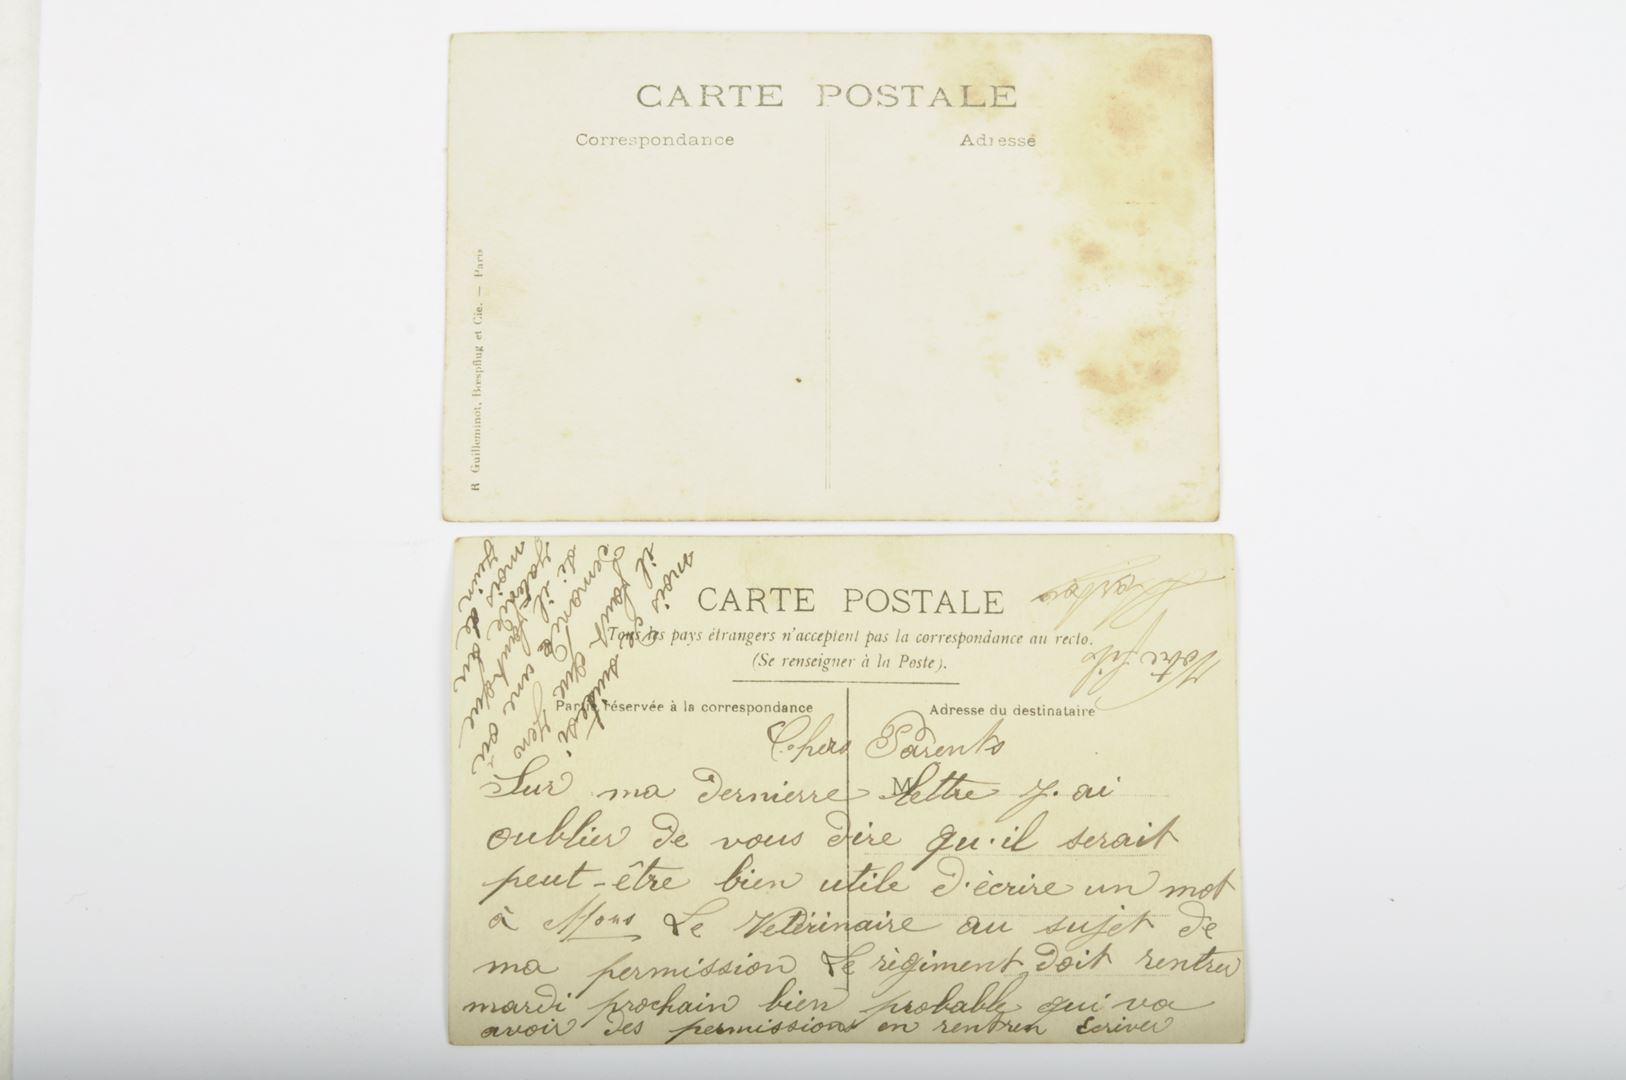 CARTE POSTALE
Correspondance
Adresse
R Guilleminot, Bœspflug et Cie. — Paris
CARTE POSTALE
Tous les pays étrangers n'acceptent pas la correspondance au recto.
(Se renseigner à la Poste).
Partie réservée à la correspondance
Adresse du destinataire
M
Chers Parents
Sur ma dernierre lettre J. ai
oublier de vous dire qu.il serait
peut-être bien utile d.écrire un mot
à Mons Le Vetérinaire au sujet de
ma permission Le règiment doit rentrer
mardi prochain bien probable qui va
avoir des permissions en rentren Ecriver
mois de suite si
il faut que
di il
mois
juin
Votre fils